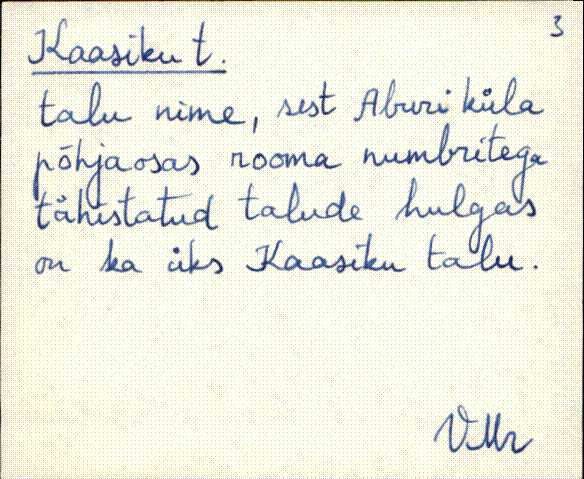 3
Kaasiku t.
talu nime, sest Aburi küla
põhjaosas rooma numbritega
tähistatud talude hulgas
on ka üks Kaasiku talu.
VMr